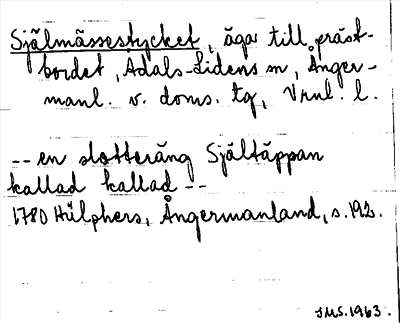 Själmässestycket, äga till präst-
bordet, Ådals-Lidens sn, Ånger-
manl. v. doms. tg, Vrnl. l.
-- en slotteräng Själtäppan
kallad kallad --
1780 Hülphers, Ångermanland, s.192.
JMS.1963.